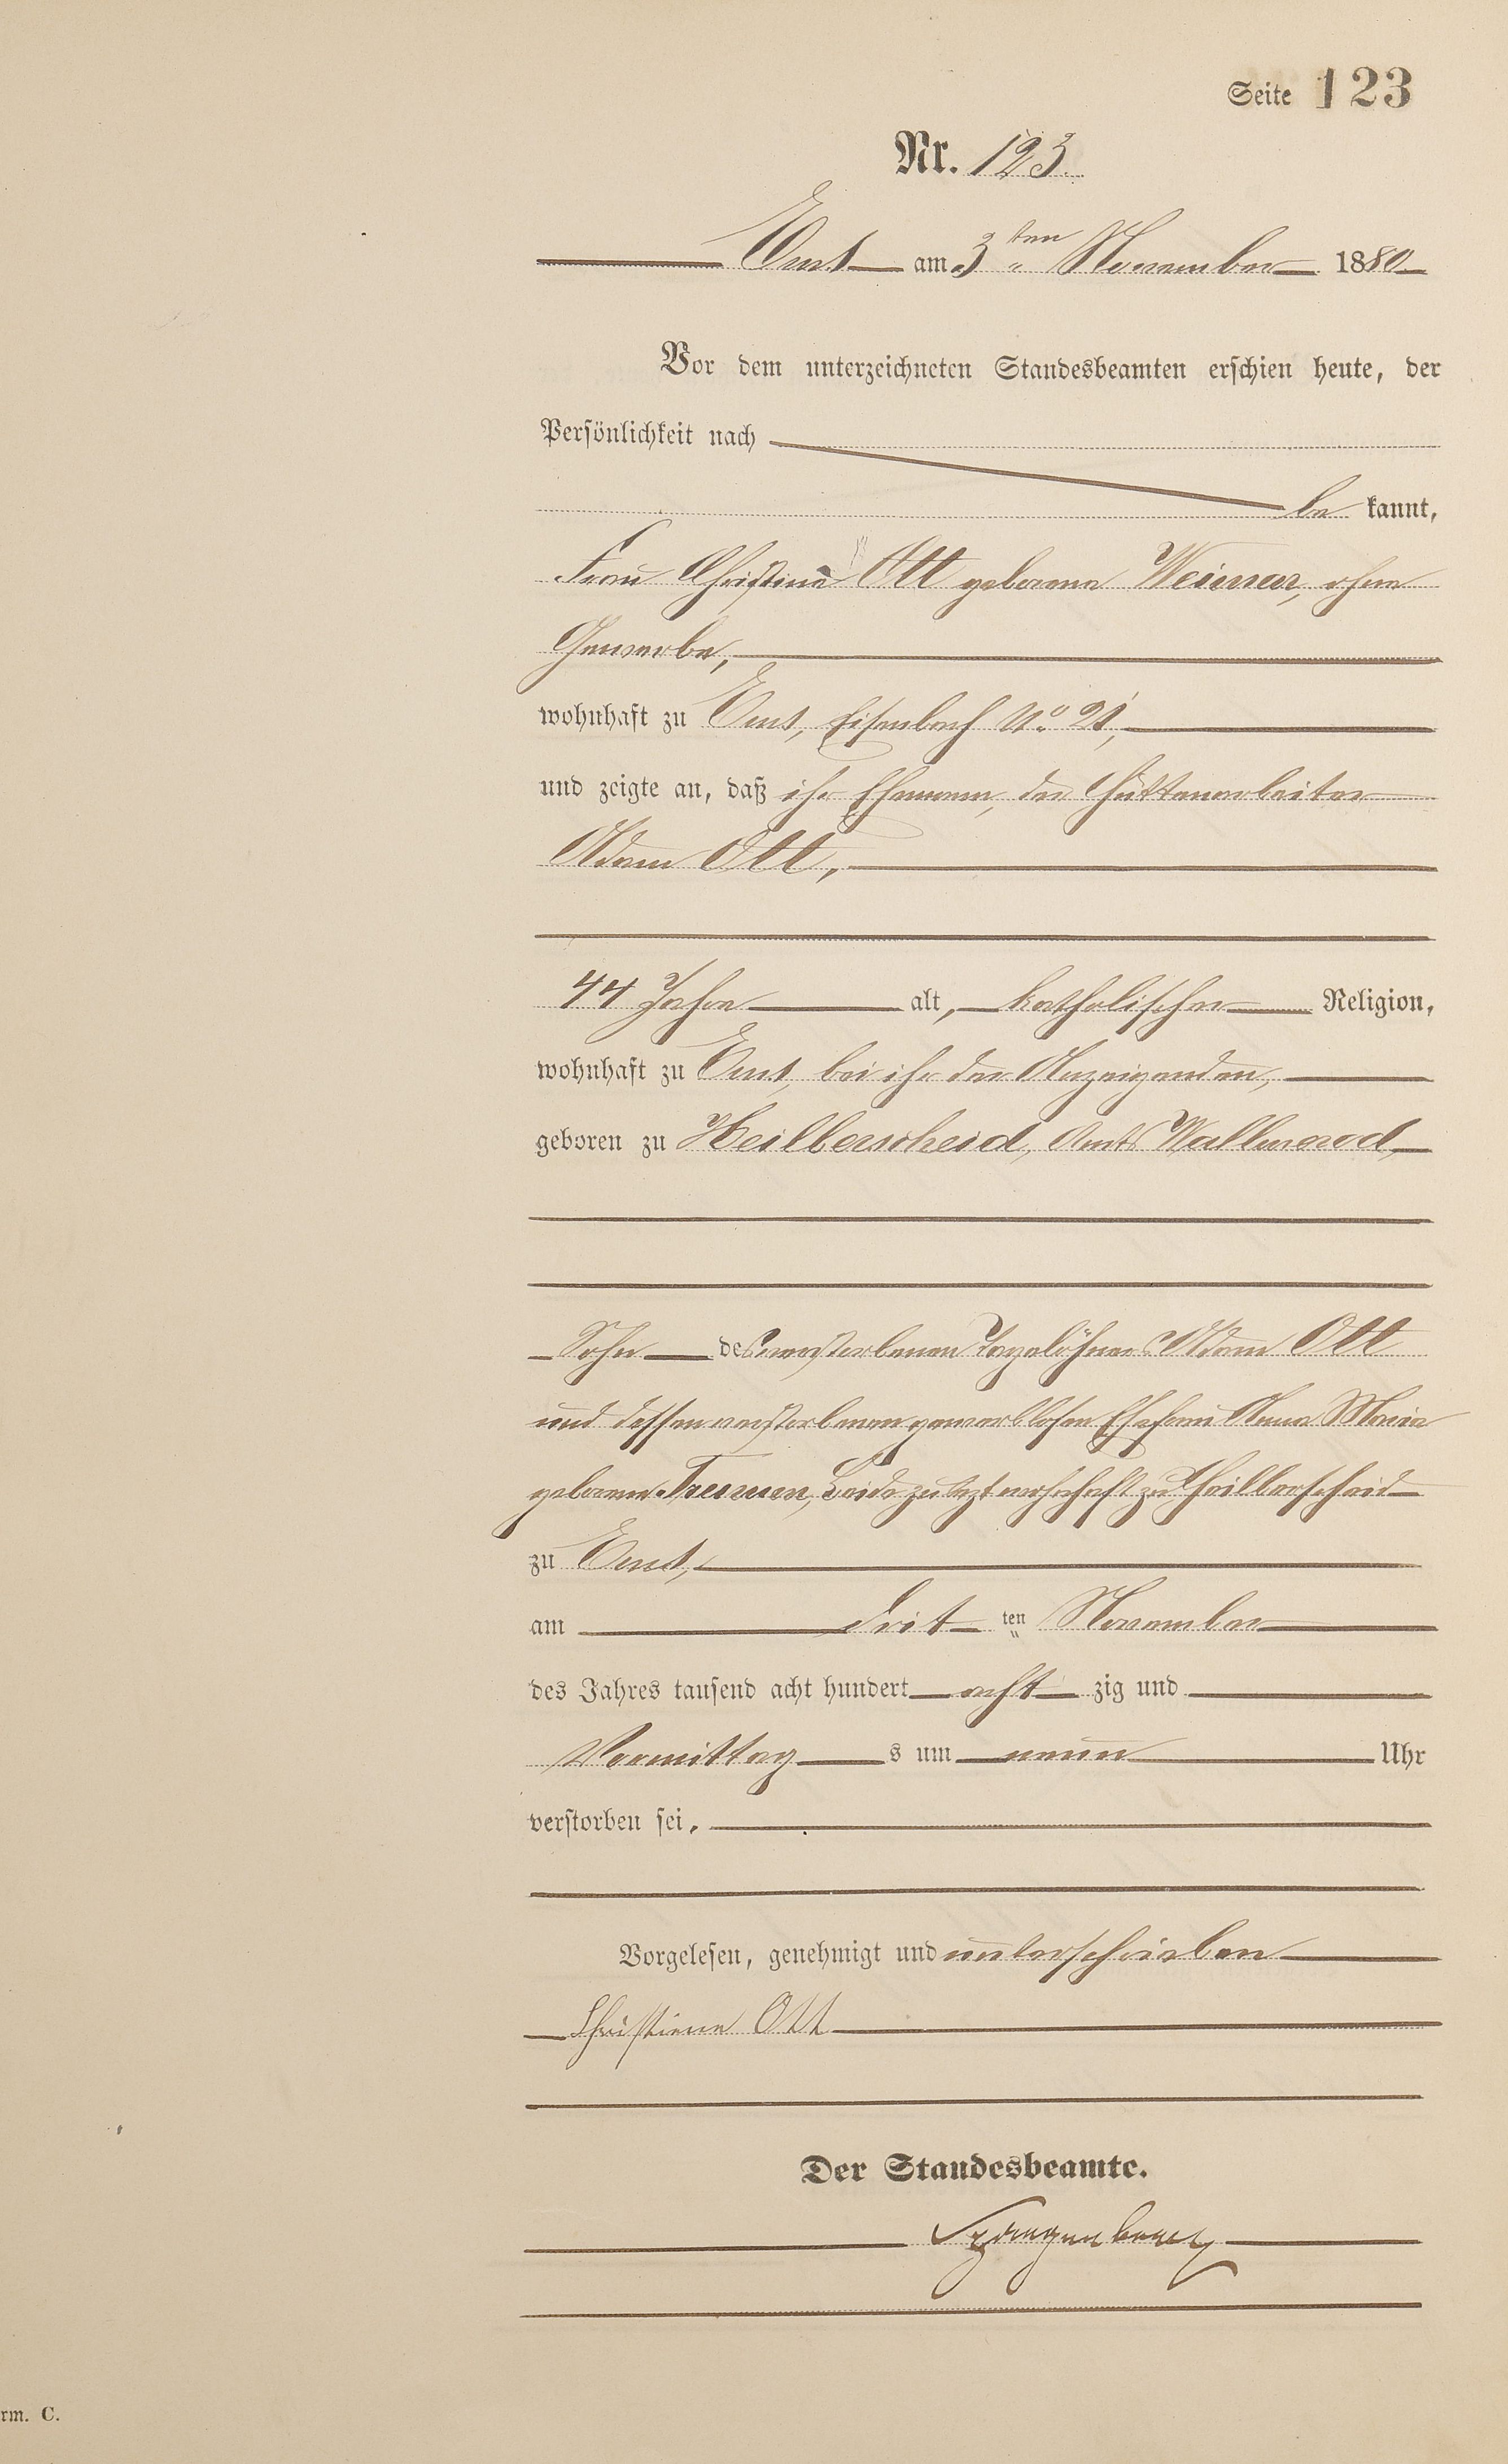 Seite 123
Nr. 123.
Ems am 3ten November 1880
Vor dem unterzeichneten Standesbeamten erschien heute, der
Persönlichkeit nach
be kannt,
Frau Christina Ott geborene Weimer, ohne
Gewerbe,
wohnhaft zu Ems, Eisenbach No. 21,
und zeigte an, daß ihr Ehemann, der Hüttenarbeiter
Adam Ott,
44 Jahre alt, katholischer Religion,
wohnhaft zu Ems, bei ihr der Anzeigenden,
geboren zu Heilberscheid, Amts Wallmerod,
Sohn des verstorbenen Tagelöhners Adam Ott
und dessen verstorbenen gewerblosen Ehefrau Anna Maria
geborene Beide zuletzt wohnhaft zu Heilberscheid
zu Ems,
am drit ten November
des Jahres tausend acht hundert acht zig und
Vormittag s um neun Uhr
verstorben sei.
Vorgelesen, genehmigt und unterschrieben
Christiene Ott
Der Standesbeamte.
rm. C.